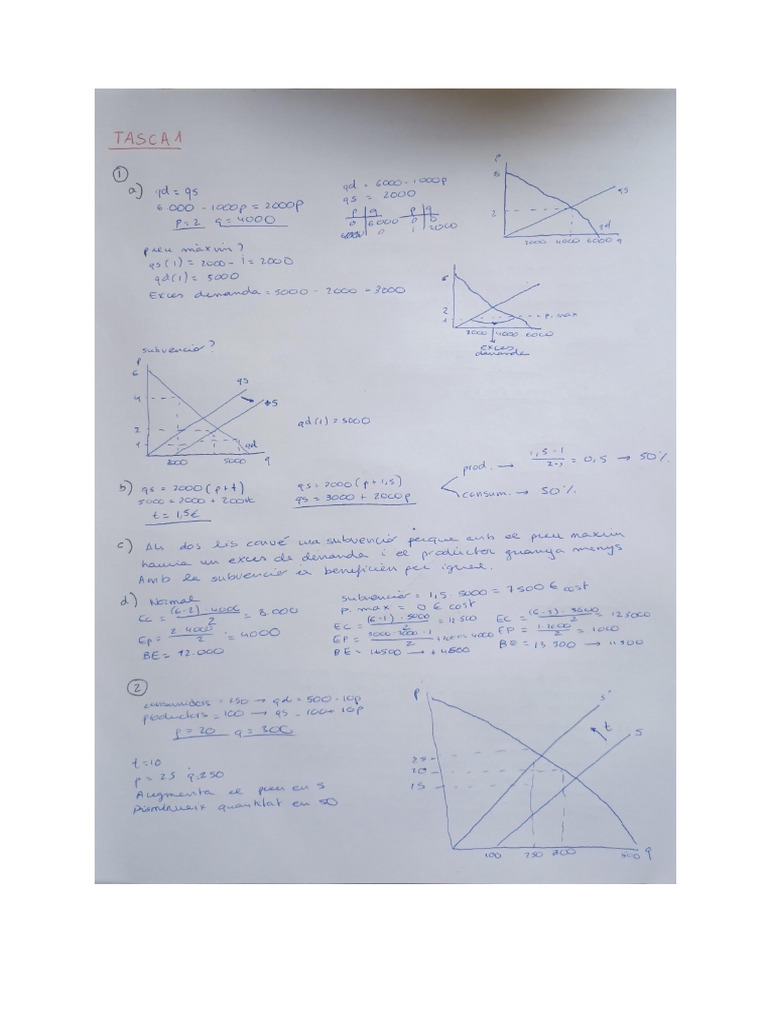 TASCA 1
①
a) qd = qs
6.000 - 1000p = 2000p
p = 2 q = 4000
qd = 6000 - 1000p
qs = 2000
p q p q
0 6000 0 0
6000 0 1 2000
P
6
qs
2
qd
2000 4000 6000 q
preu màxim?
qs(1) = 2000 · 1 = 2000
qd(1) = 5000
Excés demanda = 5000 - 2000 = 3000
6
2
1
p. max
2000 4000 6000
excés
demanda
subvenció?
P
6
qs
4
+S
2
1
qd
2000 5000 q
qd(1) = 5000
b) qs = 2000(p+t)
5000 = 2000 + 2000t
t = 1,5€
qs = 2000(p+1,5)
qs = 3000 + 2000p
prod. → = 0,5 → 50%
consum. → 50%
c) Als dos els convé una subvenció perque amb el preu màxim
hauria un excés de demanda i el productor guanya menys
Amb la subvenció es beneficien per igual.
d) Normal
EC = (6-2) · 4000 / 2 = 8.000
EP = 2 · 4000 / 2 = 4000
BE = 12.000
subvenció = 1,5 · 5000 = 7500 € cost
p. max = 0 € cost
EC = (6-1) · 5000 / 2 = 12500
EP =
BE =
EC =
EP = = 1000
BE =
②
consumidors = 150 → qd = 500 - 10p
productors = 100 → qs = -100 + 10p
p = 20 q = 300
t = 10
p = 25 q = 250
Augmenta el preu en 5
Disminueix quantitat en 50
P
S'
t
S
25
20
15
100 250 300 500 q